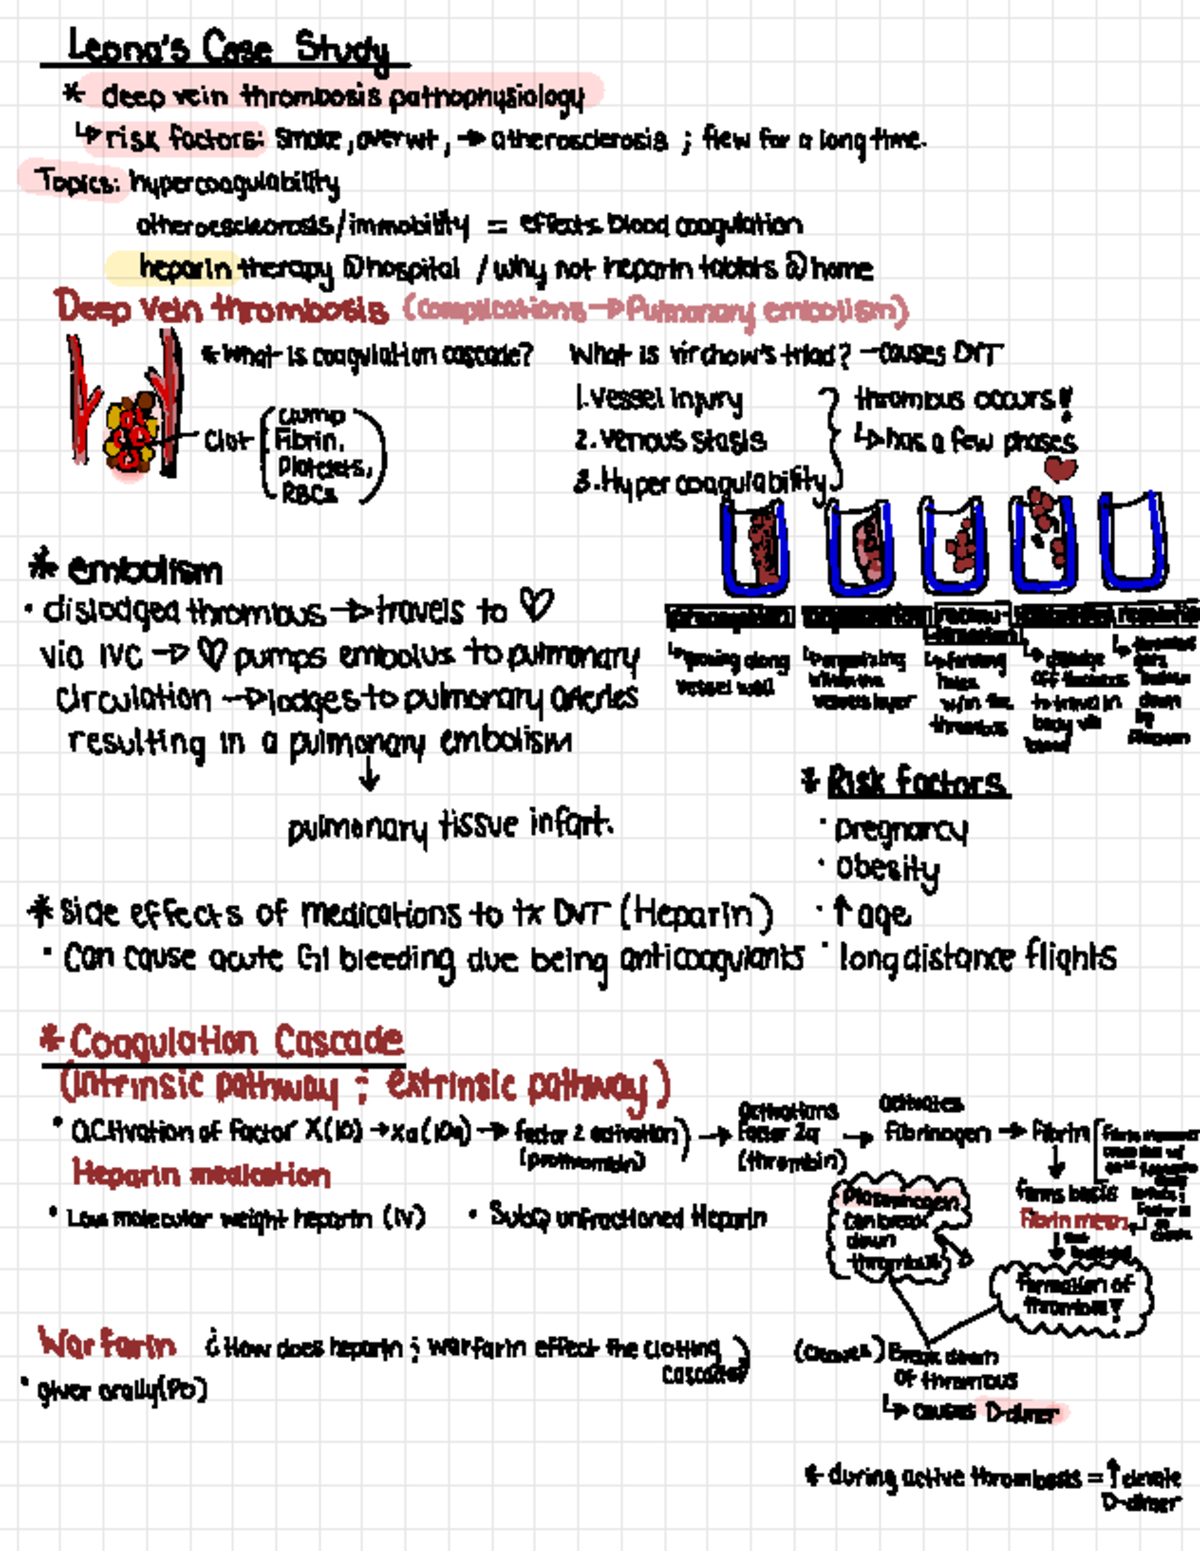 Leona's Case Study
* deep vein thrombosis pathophysiology
↳ risk factors: smoke, overwt, → atherosclerosis ; flew for a long time.
Topics: hypercoagulability
/immobility = effects blood coagulation
heparin therapy @hospital / why not heparin tablets @home
Deep vein thrombosis (complications → Pulmonary embolism)
* What is coagulation cascade?
Clot
Clump
Fibrin,
Platelets,
RBCs
What is virchow's triad? - causes DVT
1. vessel injury
2. venous stasis
3. Hypercoagulability
thrombus occurs!
↳ has a few phases
* embolism
• dislodged thrombus → travels to ♡
via IVC → ♡ pumps embolus to pulmonary
circulation → lodges to pulmonary arteries
resulting in a pulmonary embolism
↓
pulmonary tissue infart.
↳ growing along
vessel wall
↳ organizing
within the
vessels layer
↳ forming
holes
w/in the
thrombus
↳ dislodge
off
to travel in
body via
blood
down
by
* Risk factors
• pregnancy
• obesity
• ↑ age
• long distance flights
* Side effects of medications to tx DVT (Heparin)
• Can cause acute GI bleeding due being anticoagulants
* Coagulation Cascade
(intrinsic pathway ; extrinsic pathway)
• activation of factor X(10) → xa(10a) → factor 2 activation)
(prothrombin)
→ activations
factor 2a
(thrombin)
→ activates
fibrinogen → fibrin
↓
forms basis
Fibrin mesh
↓
formation of
thrombus!
Heparin medication
• Low molecular weight heparin (IV)
• SubQ unfractioned Heparin
can break
down
thrombus
Warfarin ¿ How does heparin ; warfarin effect the clotting
cascade?
• given orally (PO)
Break down
of thrombus
↳ causes D-dimer
* during active thrombosis = ↑ elevate
D-dimer